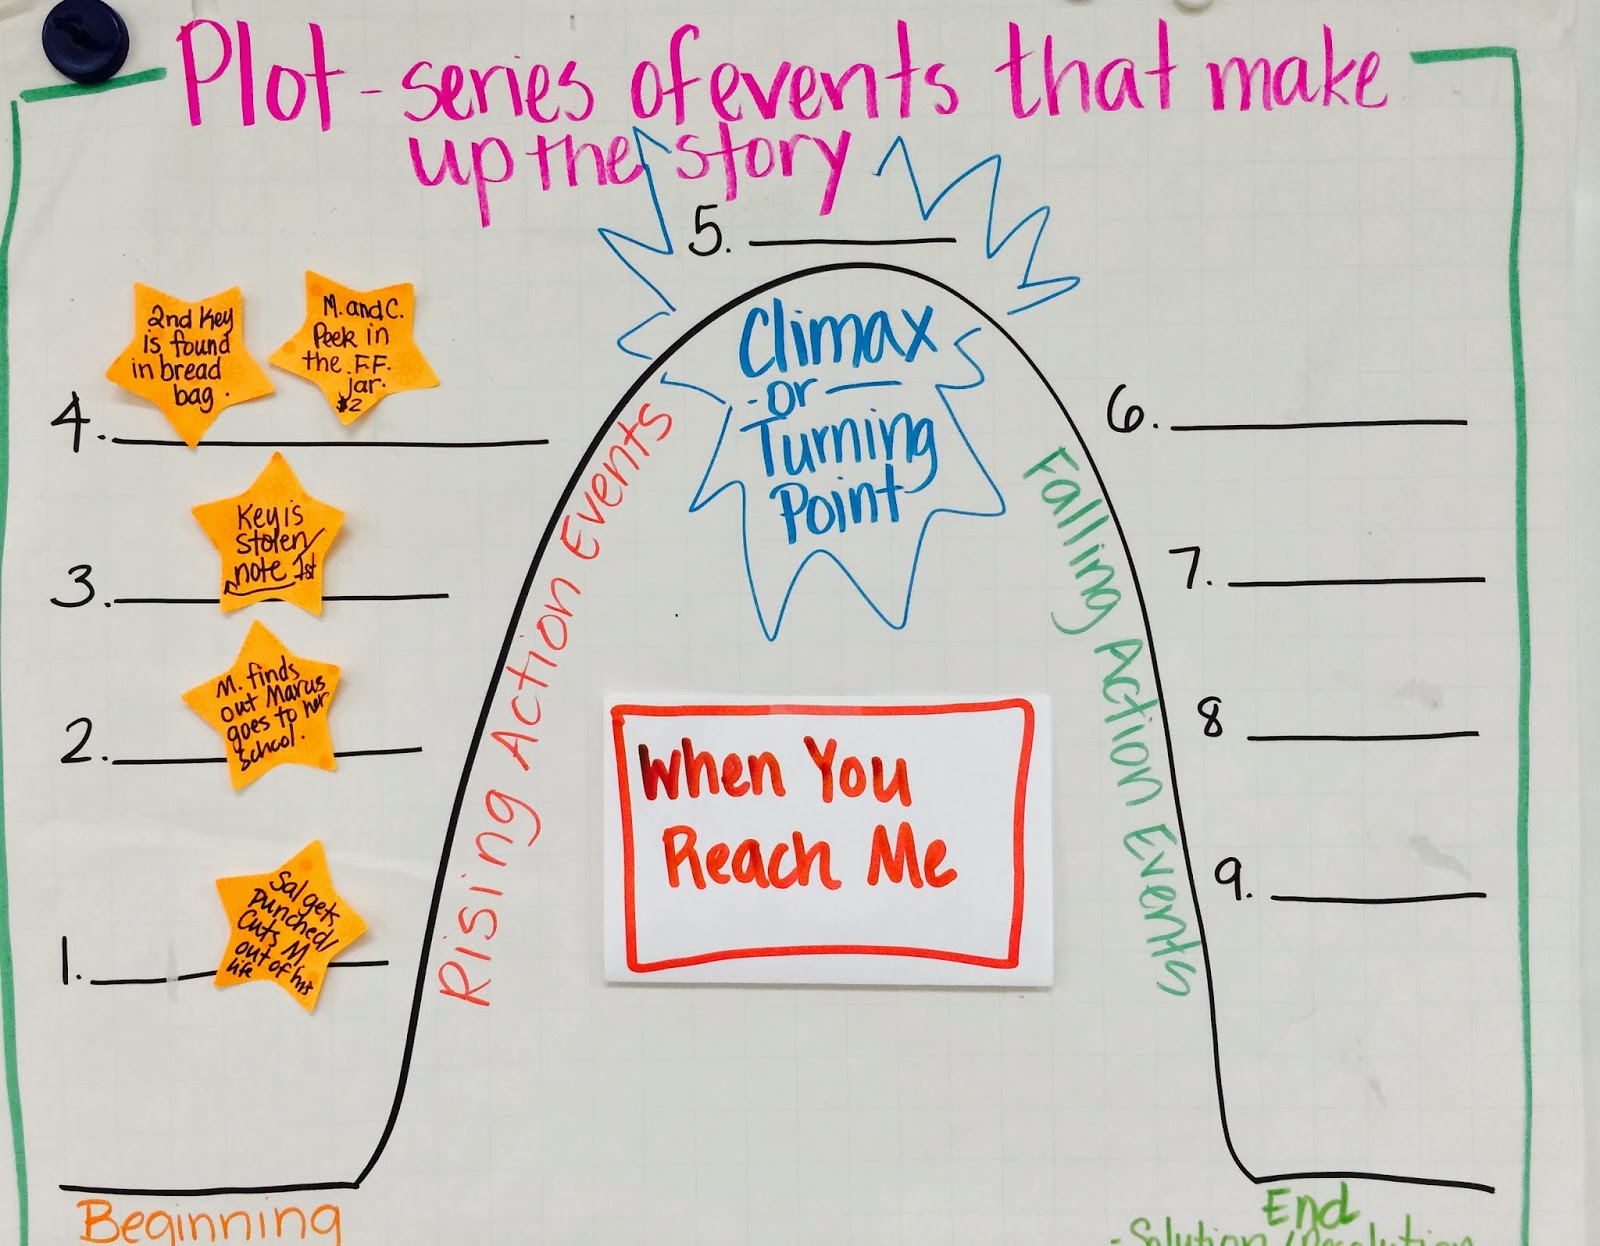 Plot - series of events that make
up the story
5.
Climax
- or -
Turning
Point
2nd Key
is found
in bread
bag.
M. and C.
Peek in
the F.F.
jar.
$2
4.
Key is
stolen/
note 1st
3.
M. finds
out Marcus
goes to her
school.
2.
Sal gets
punched/
Cuts M.
out of his
life
1.
Rising Action Events
When You
Reach Me
Falling Action Events
6.
7.
8
9.
Beginning
End
- Solution / Resolution